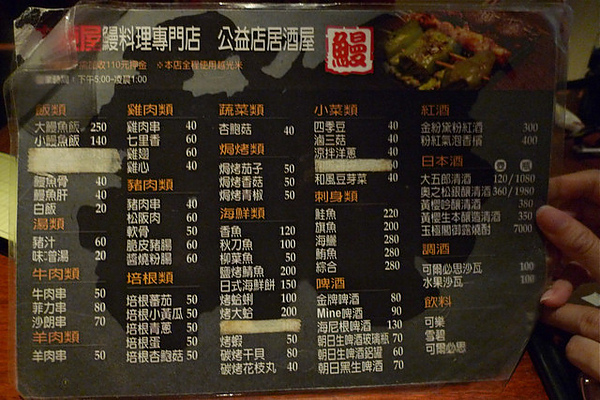 屋鰻料理專門店 公益店居酒屋
鰻
收110元押金 ※本店全程使用越光米
時間：下午5:00~凌晨1:00
飯類
大鰻魚飯 250
小鰻魚飯 140
鰻魚骨 40
鰻魚肝 40
白飯 20
湯類
豬汁 60
味噌湯 20
牛肉類
牛肉串 50
菲力串 80
沙朗串 70
羊肉類
羊肉串 50
雞肉類
雞肉串 40
七里香 60
雞翅 60
雞心 40
豬肉類
豬肉串 40
松阪肉 60
軟骨 50
脆皮豬腸 60
醬燒粉腸 60
培根類
培根蕃茄 50
培根小黃瓜 50
培根青蔥 50
培根蛋 50
培根杏鮑菇 50
蔬菜類
杏鮑菇 40
焗烤類
焗烤茄子 50
焗烤香菇 50
焗烤青椒 50
海鮮類
香魚 120
秋刀魚 100
柳葉魚 50
鹽烤鯖魚 200
日式海鮮餅 150
烤蛤蜊 100
烤大蛤 200
烤蝦 50
碳烤干貝 80
碳烤花枝丸 40
小菜類
四季豆 40
滷三菇 40
涼拌洋蔥 40
和風豆芽菜 40
刺身類
鮭魚 220
旗魚 200
海鱺 280
鮪魚 280
綜合 280
啤酒
金牌啤酒 80
Mine啤酒 90
海尼根啤酒 130
朝日生啤酒玻璃瓶 70
朝日生啤酒鋁罐 60
朝日黑生啤酒 70
紅酒
金粉黛粉紅酒 300
粉紅氣泡香檳 400
日本酒
大五郎清酒 120/1080
奧之松銀釀清酒 360/1980
黃櫻吟釀清酒 380
黃櫻生本釀造清酒 350
玉極閣御露燒酎 7000
調酒
可爾必思沙瓦 100
水果沙瓦 100
飲料
可樂
雪碧
可爾必思